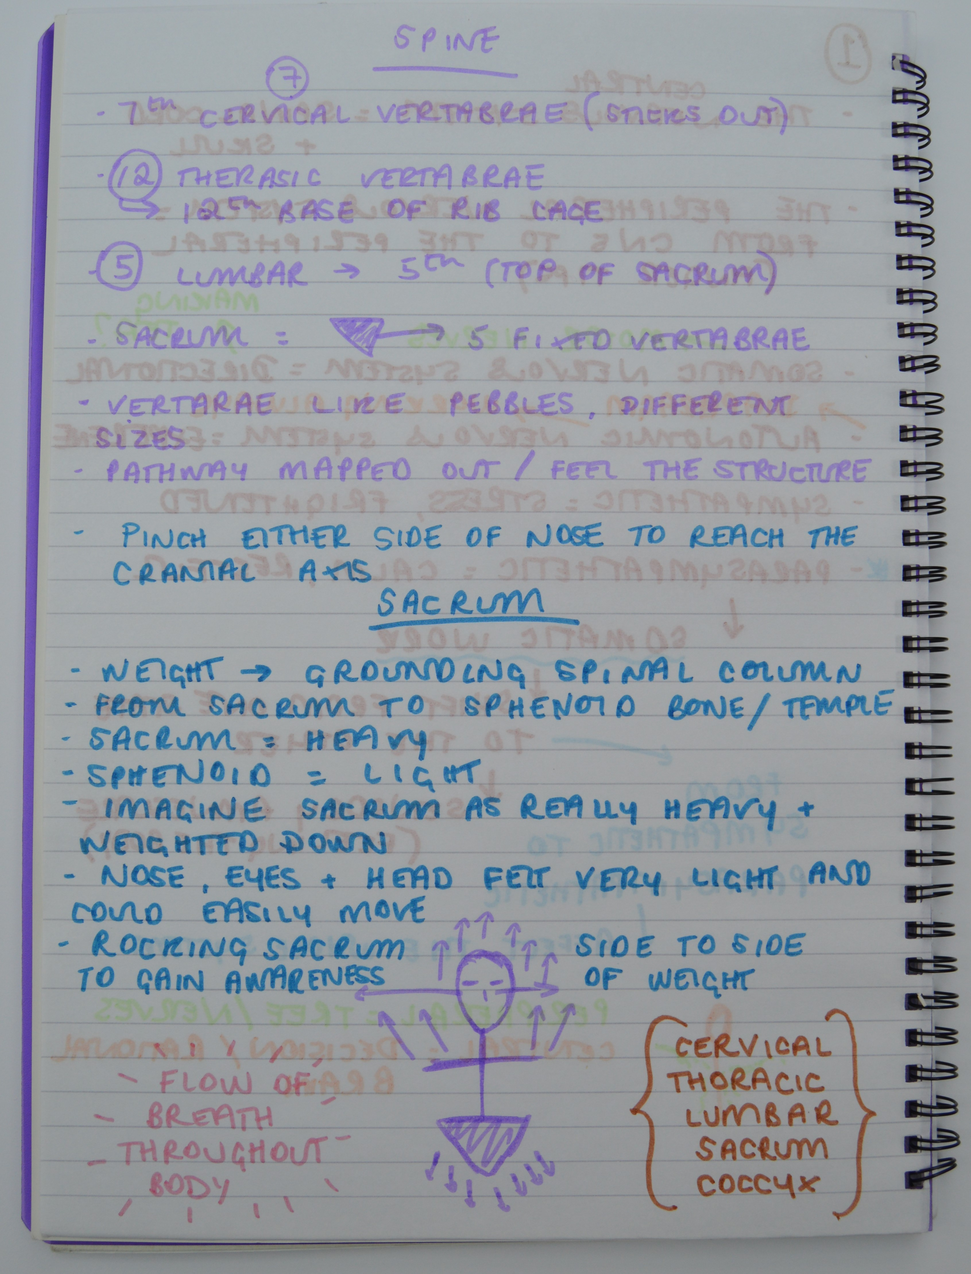 SPINE
7
- 7th CERVICAL VERTABRAE (STICKS OUT)
- 12 THERASIC VERTABRAE
→ 12th BASE OF RIB CAGE
- 5 LUMBAR → 5th (TOP OF SACRUM)
- SACRUM = → 5 FIXED VERTABRAE
- VERTARAE LIKE PEBBLES, DIFFERENT
SIZES
- PATHWAY MAPPED OUT / FEEL THE STRUCTURE
- PINCH EITHER SIDE OF NOSE TO REACH THE
CRANIAL AXIS
SACRUM
- WEIGHT → GROUNDING SPINAL COLUMN
- FROM SACRUM TO SPHENOID BONE / TEMPLE
- SACRUM = HEAVY
- SPHENOID = LIGHT
- IMAGINE SACRUM AS REALLY HEAVY +
WEIGHTED DOWN
- NOSE, EYES + HEAD FELT VERY LIGHT AND
COULD EASILY MOVE
- ROCKING SACRUM SIDE TO SIDE
TO GAIN AWARENESS OF WEIGHT
FLOW OF
BREATH
THROUGHOUT
BODY
CERVICAL
THORACIC
LUMBAR
SACRUM
COCCYX